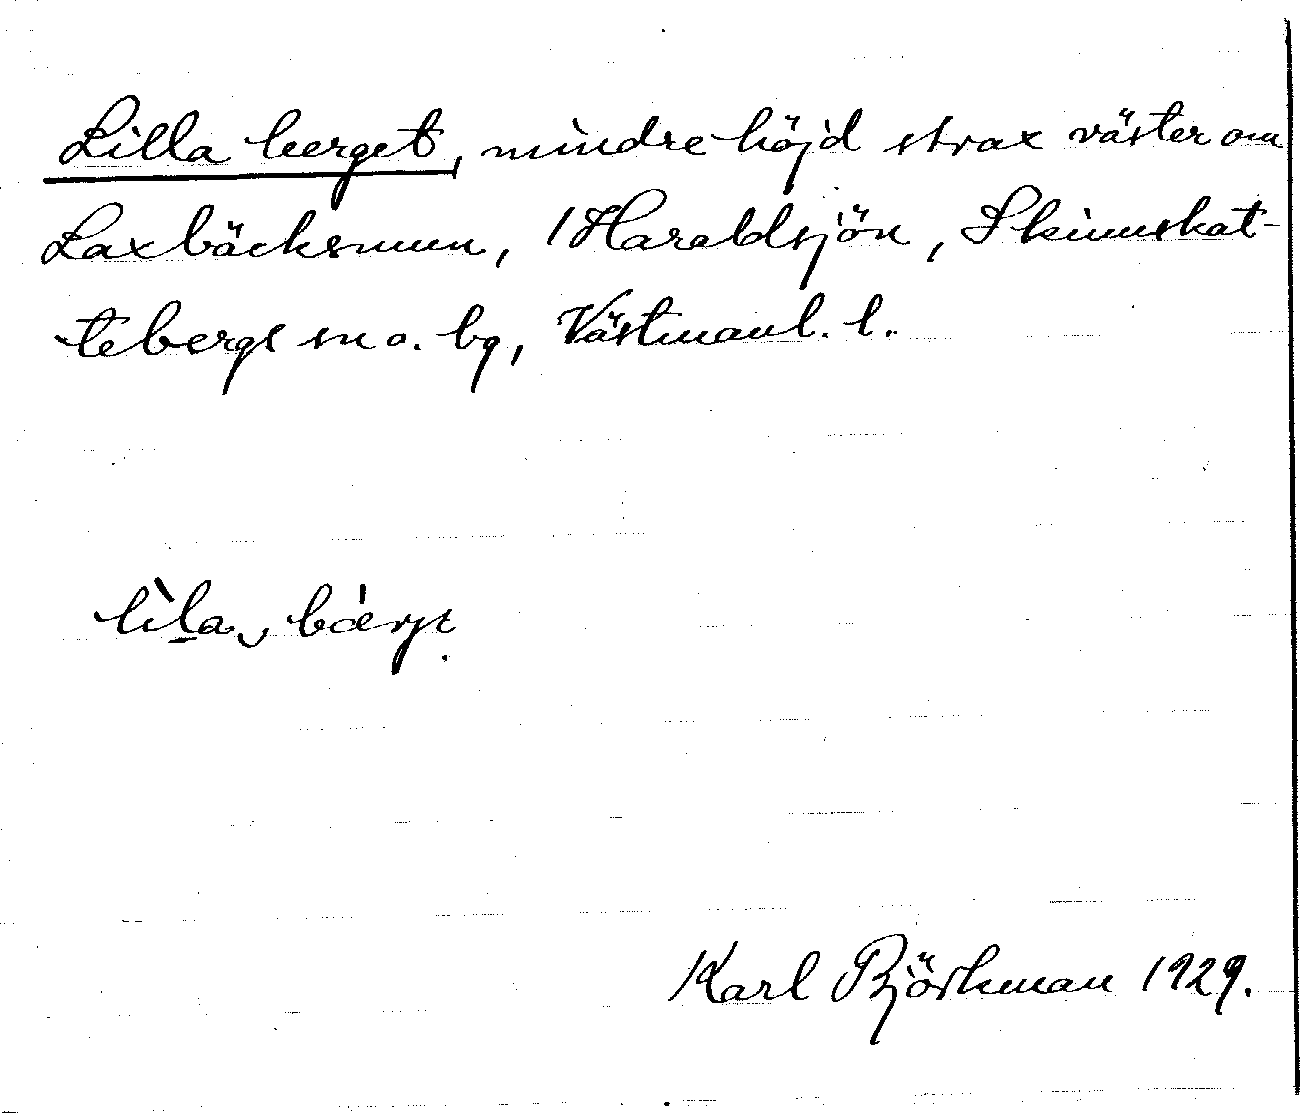 Lilla berget, mindre höjd strax väster om
Laxbäcksmun, Haraldsjön, Skinnskat-
tebergs sn o. bg, Västmanl. l.
Karl Björkman 1929.